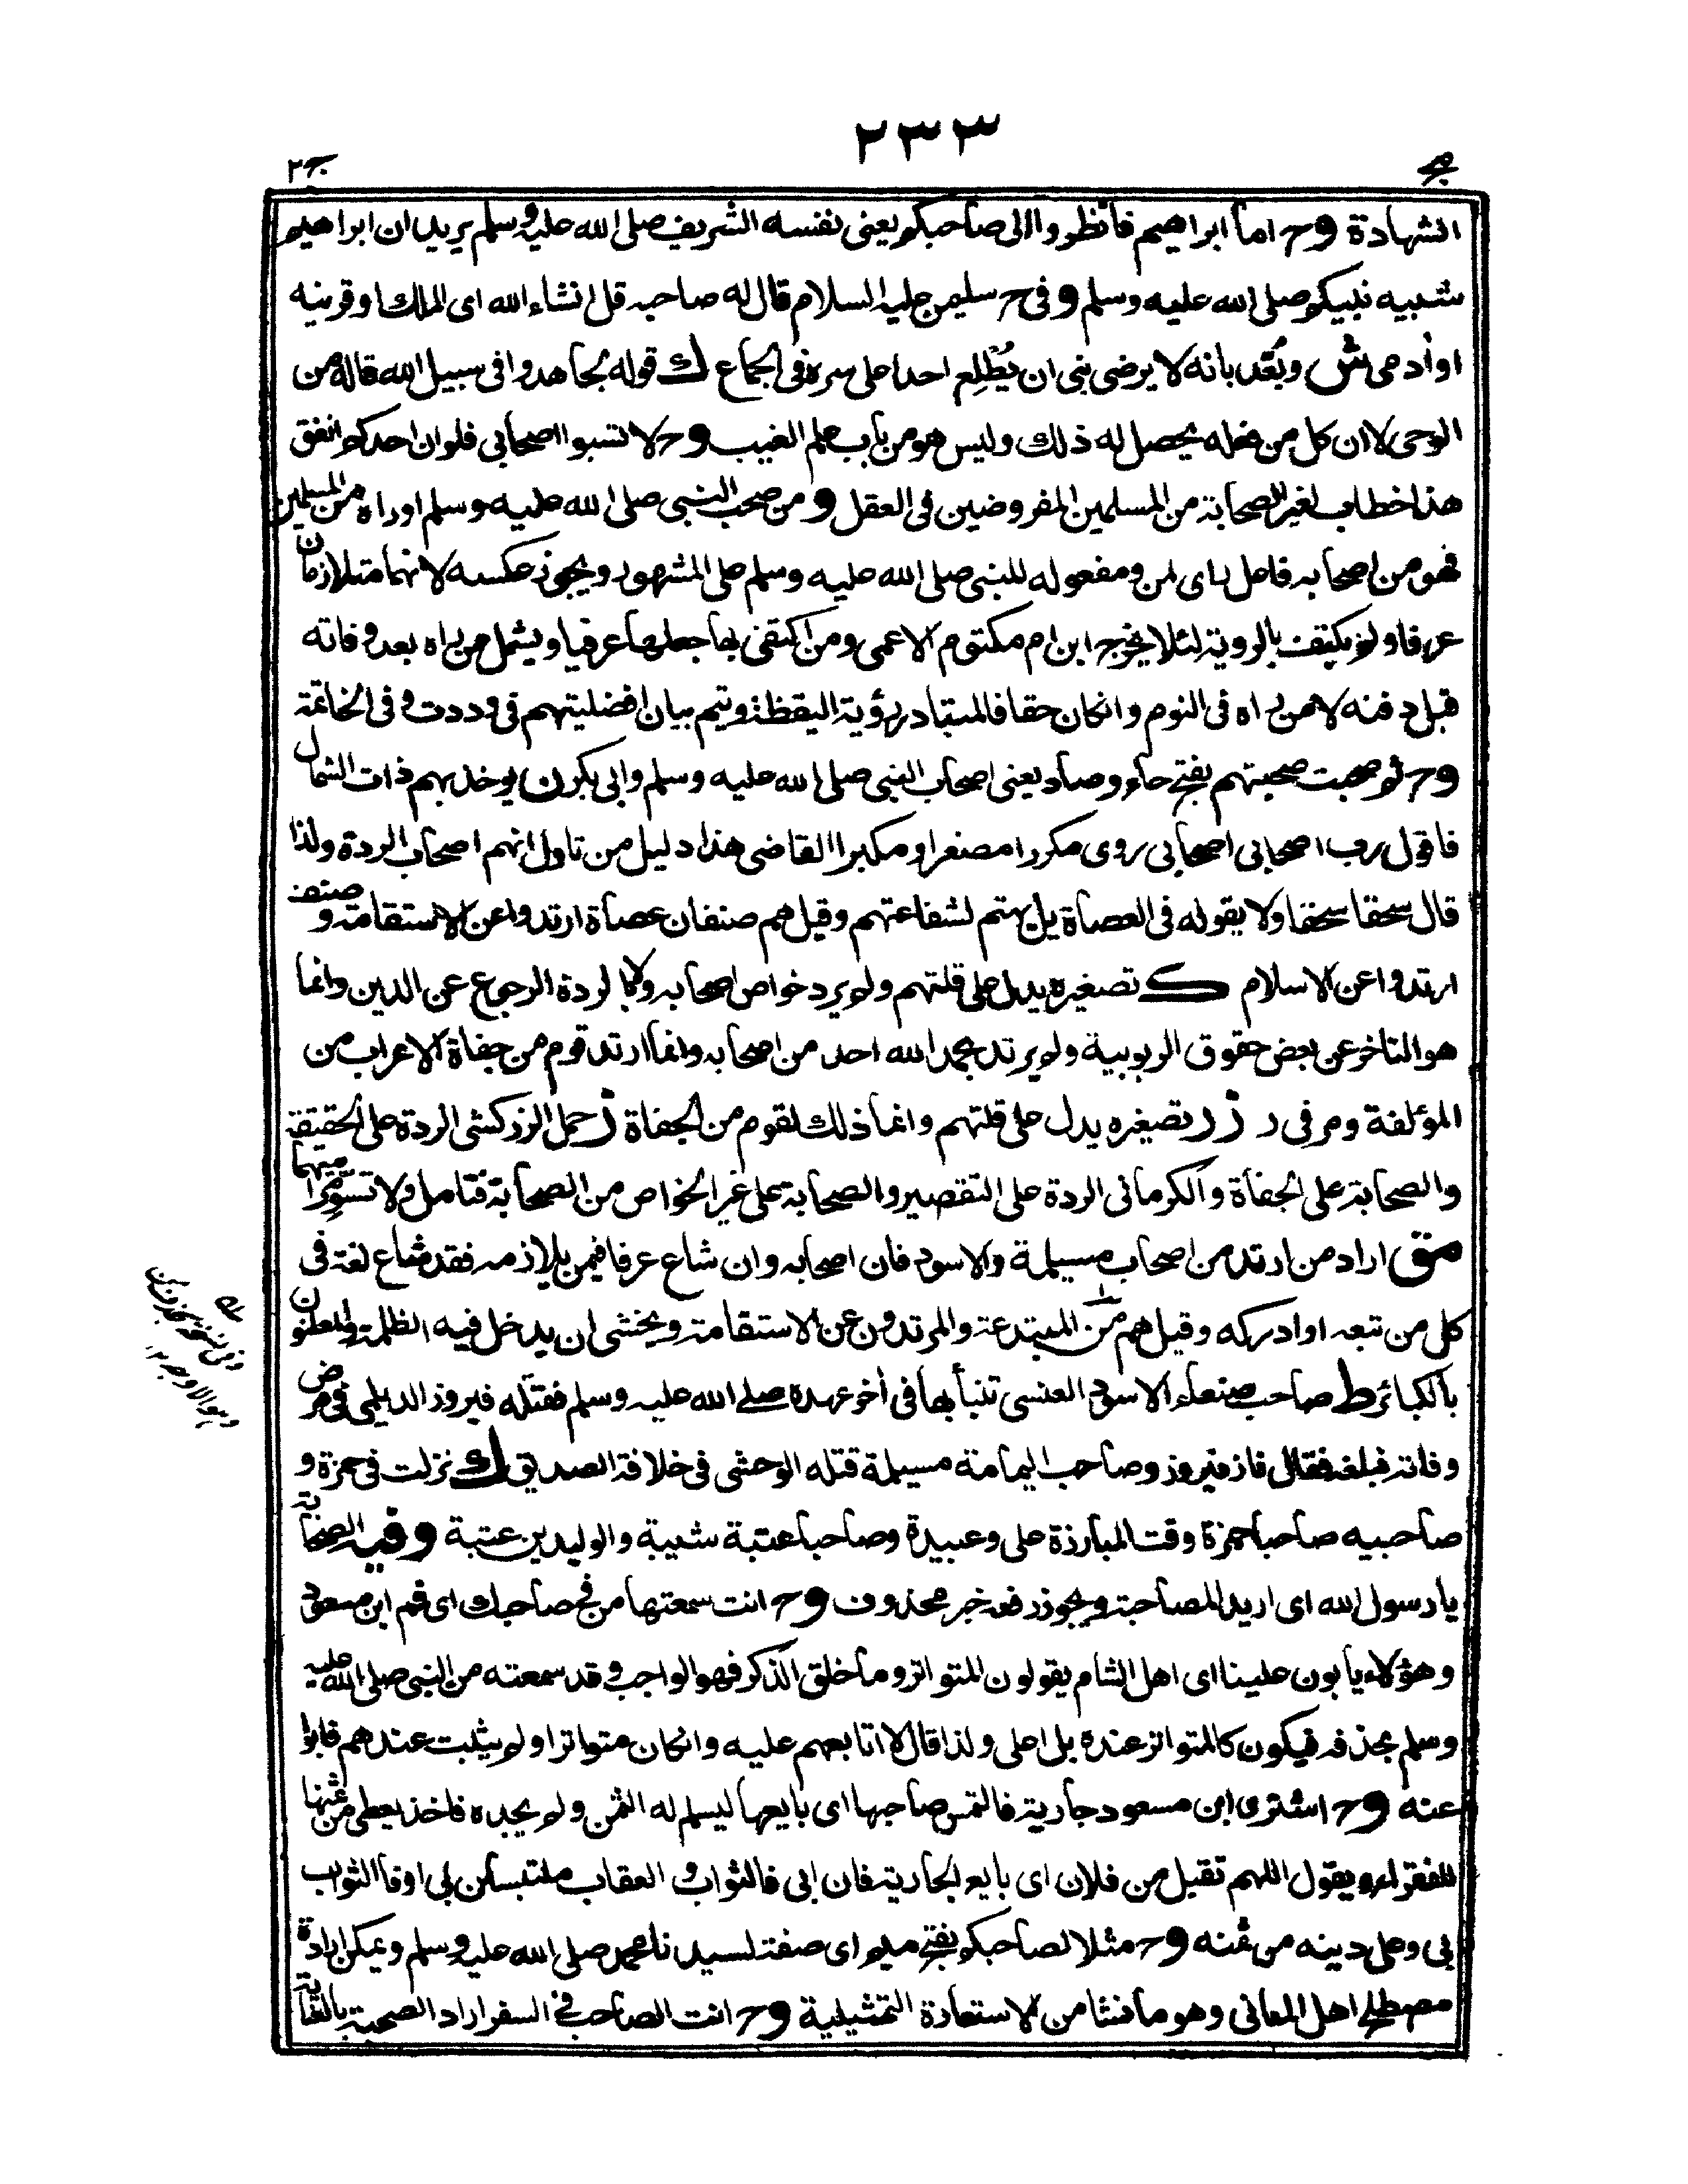 ٢٣٣
صح
ج٢
الشهادة وح اما ابراهيم فانظروا الى صاحبكم يعنى نفسه الشريف صلى الله عليه وسلم يريد ان ابراهيم
شبيه نبيكم صلى الله عليه وسلم وفى ح سليمن عليه السلام قال له صاحبه قل انشاء الله اى الملك او قرينه
او أدمى ش وبُعّد بانه لا يرضى نبى ان يُطْلِع احدا على سره فى الجماع ك قوله يجاهدوا فى سبيل الله قاله من
الوحى لا ان كل من فعله يحصل له ذلك وليس هو من باب علم الغيب وح لا تسبوا اصحابى فلو ان احدكم انفق
هذا خطاب لغير الصحابة من المسلمين المفروضين فى العقل و من صحب النبى صلى الله عليه وسلم اوراه من المسلمين
فهو من اصحابه فاعل راى لمن ومفعوله للنبى صلى الله عليه وسلم على المشهور ويجوز عكسه لانهما متلازمان
عرفا ولم يكتف بالروية لئلا يخرج ابن ام مكتوم الاعمى ومن اكتفى بها جعلها عرفيا ويشمل من راه بعد وفاته
قبل دفنه لا من راه فى النوم وانكان حقا فالمتبادر رؤية اليقظة ويتم بيان افضليتهم فى وددت و فى الخاتمة
وح ثم صحبت صحبتهم بفتح حاء وصاد يعنى اصحاب النبى صلى الله عليه وسلم وابى بكر ن يوخذ بهم ذات الشمال
فاقول رب اصحابى اصحابى روى مكررا مصغرا ومكبرا القاضى هذا دليل من تاول انهم اصحاب الردة ولذا
قال سحقا سحقا ولا يقوله فى العصاة بل يهتم لشفاعتهم وقيل هم صنفان عصاة ارتدوا عن الاستقامة و صنف
ارتدوا عن الاسلام ك تصغيره يدل على قلتهم ولم يرد خواص اصحابه ولا بالردة الرجوع عن الدين وانما
هو التاخر عن بعض حقوق الربوبية ولم يرتد بحمد الله احد من اصحابه وانما ارتد قوم من جفاة الاعراب من
المؤلفة ومر فى ر ز ر تصغيره يدل على قلتهم وانما ذلك لقوم من الجفاة ز حمل الزركشى الردة على الحقيقة
والصحابة على الجفأة والكرمانى الردة على التقصير والصحابة على غير الخواص من الصحابة فتامل ولا تسو بينهما
مق اراد من ارتد من اصحاب مسيلمة والاسود فان اصحابه وان شاع عرفا فيمن يلازمه فقد شاع لغة فى
كل من تبعه او ادركه وقيل هم من المبتدعة والمرتدون عن الاستقامة ويخشى ان يدخل فيه الظلمة والمعلنون
بالكبائر ط صاحب صنعاء الاسود العنسى تنبأ بها فى أخر عهدة صلى الله عليه وسلم فقتله فيروز الديلمى فى مرض
وفاته فبلغه فقال فاز فيروز وصاحب اليمامة مسيلمة قتله الوحشى فى خلافة الصديق ك نزلت فى حمزة و
صاحبيه صاحبا حمزة وقت المبارزة على وعبيدة وصاحبا عتبة شيبة والوليد بن عتبة وفيه الصحابة
يا رسول الله اى اريد المصاحبة ويجوز رفعه خبر محذوف وح انت سمعتها من فى صاحبك اى فم ابن مسعود
وهؤلاء يأبون علينا اى اهل الشام يقولون المتواتر وما خلق الذكر فهو الواجب وقد سمعته من النبى صلى الله عليه
وسلم بحذفه فيكون كالمتواتر عنده بل اعلى ولذا قال لا اتابعهم عليه وانكان متواترا ولم يثبت عندهم فابوا
عنه وح اشترى ابن مسعود جارية فالتمس صاحبها اى بايعها ليسلم له الثمن ولم يجده فاخذ يعطى من ثمنها
للفقراء ويقول اللهم تقبل من فلان اى بايع الجارية فان ابى فالثواب و العقاب ملتبسان بى او فالثواب
لى وعلى دينه من ثمنه وح مثلا لصاحبكم بفتح ميم اى صفة لسيدنا محمد صلى الله عليه وسلم ويمكن ارادة
مصطلح اهل المعانى وهو ما فشا من الاستعارة التمثيلية وح انت الصاحب فى السفر اراد الصحبة بالعناية